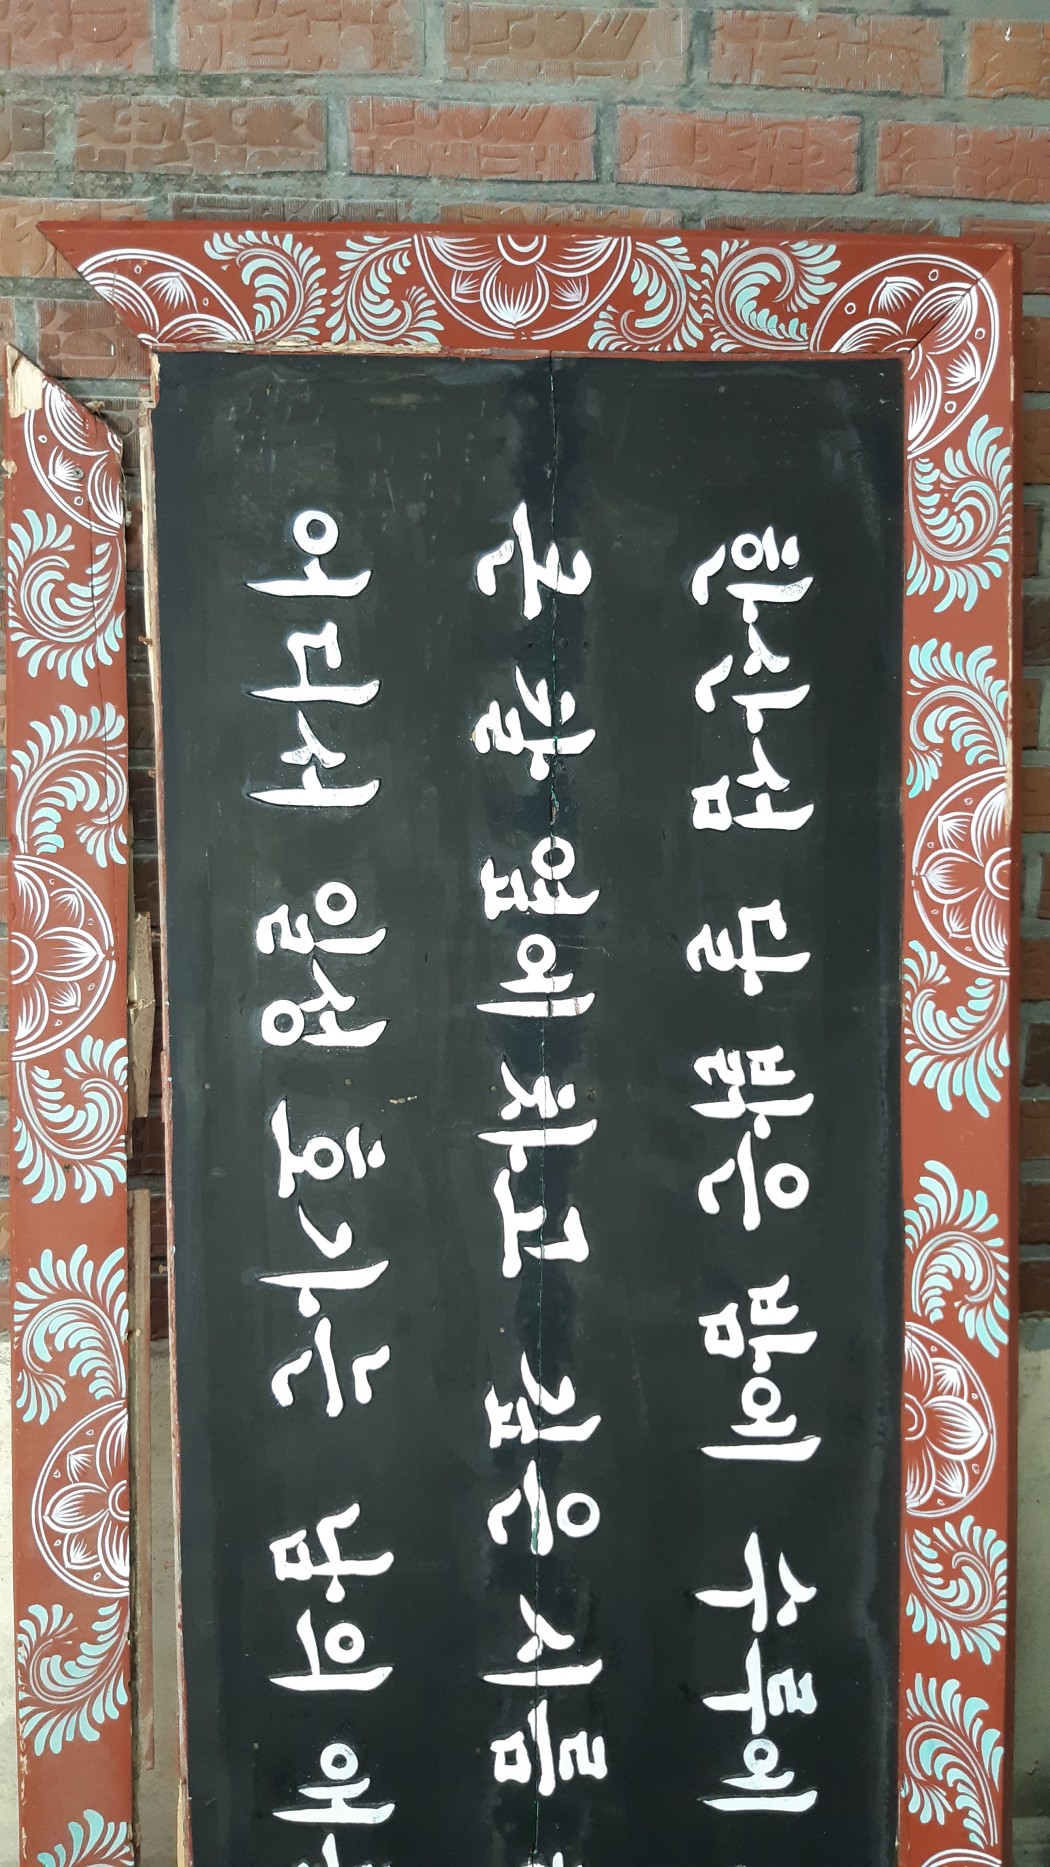 한산섬 달 밝은 밤에 수루에
큰 칼 옆에 차고 깊은 시름
어디서 일성 호가는 남의 애